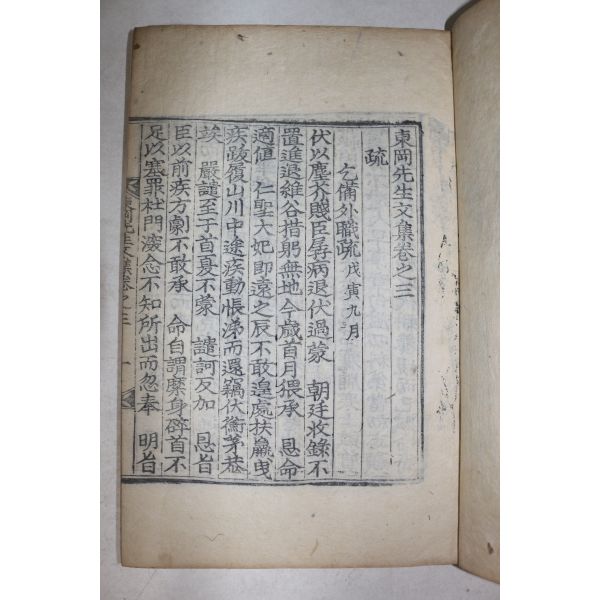 東岡先生文集卷之三
疏
乞備外職疏 戊寅九月
伏以塵芥賤臣孱病退伏過蒙 朝廷收錄不
置進退維谷措躬無地今歲首月猥承 恩命
適值 仁聖大妃卽遠之辰不敢遑處扶羸曳
疾跋履山川中途疾動悵涕而還竊伏衡茅恭
竢 嚴譴至于首夏不蒙 譴訶反加 恩旨
臣以前疾方劇不敢承 命自謂縻身碎首不
足以塞罪杜門 念不知所出而忽奉 明旨
東岡先生文集卷之三 一